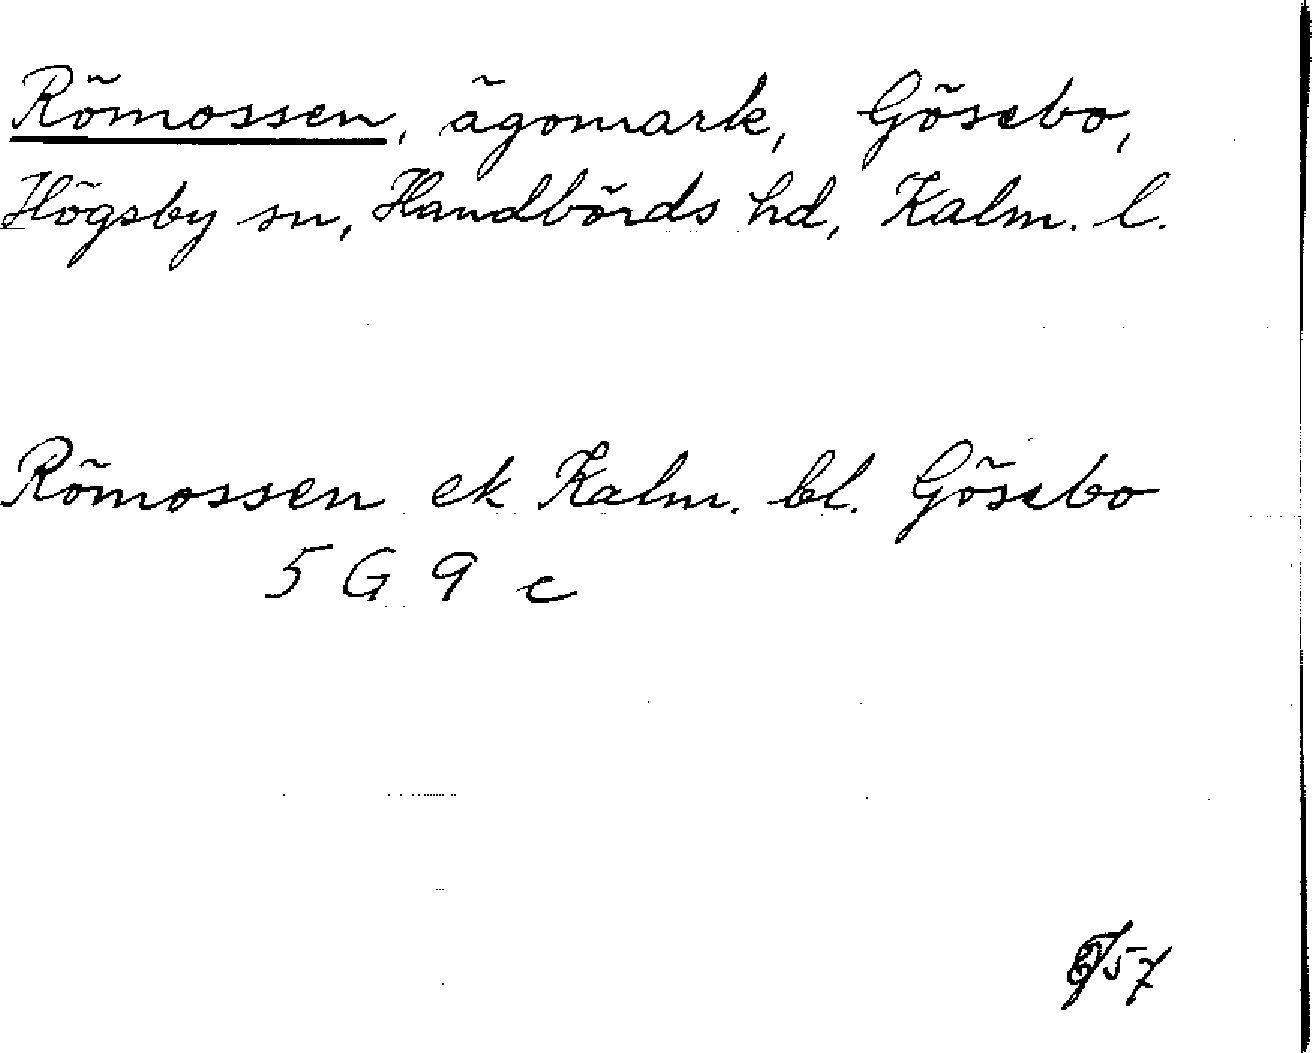 Römossen, ägomark, Gösebo,
Högsby sn, Handbörds hd, Kalm. l.
Römossen ek Kalm. bl. Gösebo
5 G 9 c
57